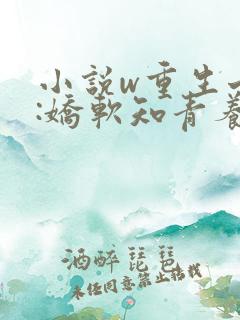 小說w重生
:嬌軟知青養
酒醉琵琶
未经同意禁止转载